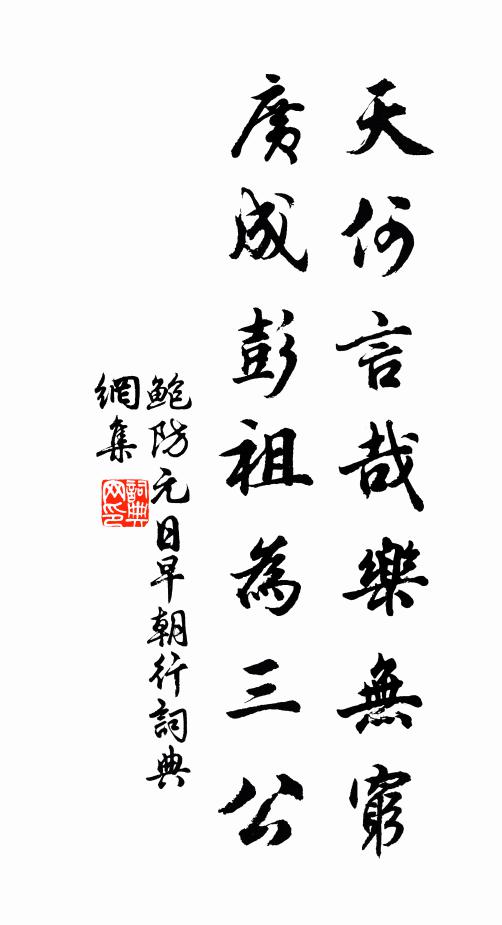 天何言哉樂無窮
廣成彭祖為三公
鮑防元日早朝行詞典
網集
詞典
网印